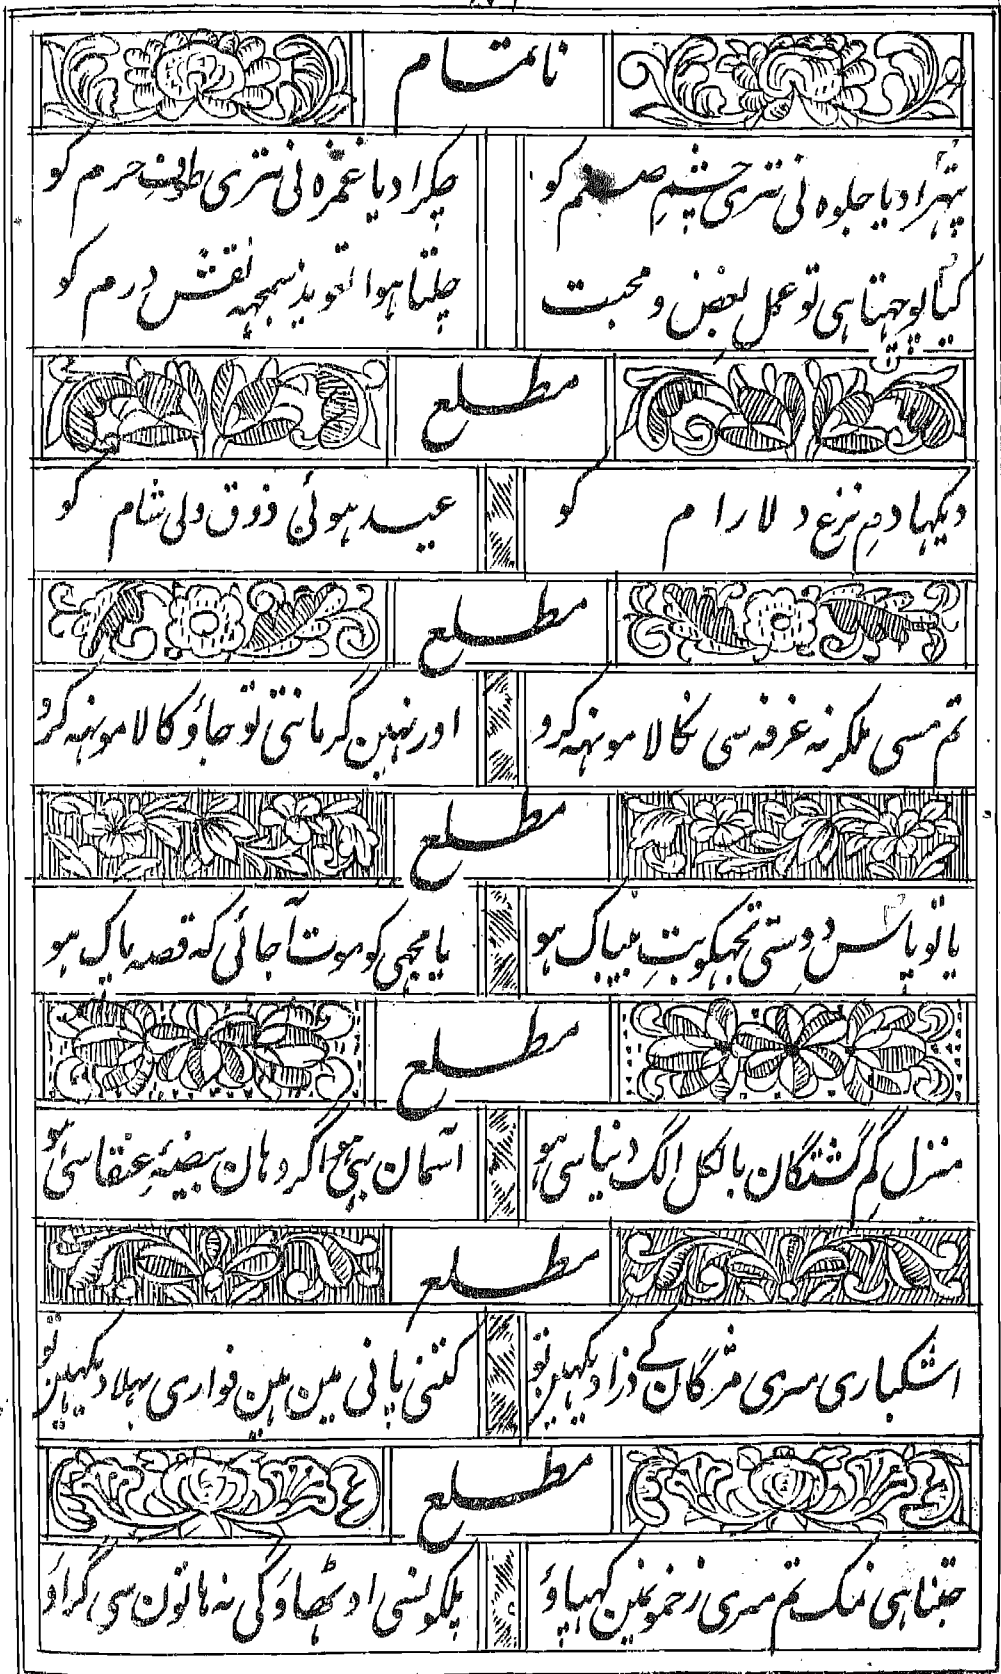 ناتمام
پتہرا دیا جلوہ نی تری چشمِ صنم کو
چکرا دیا غمزہ نی تری طوفِ حرم کو
کیا پوچہتا ہی تو عمل بغض و محبت
چلتا ہوا تعویذ سمجہہ نقش درم کو
مطلع
دیکہا دمِ نزع دلارام کو
عید ہوئی ذوق ولی شام کو
مطلع
تم مسی ملکر نہ غرفہ سی نکالا مونہہ کرو
اور نہین گر مانتی تو جاؤ کالا مونہہ کرو
مطلع
یا تو پاس دوستی تجہکو بتِ بیباک ہو
یا مجہی کو موت آجائی کہ قصہ پاک ہو
مطلع
منزل گم گشتگان بالکل الگ دنیا سی ہو
آسمان بہی ہو اگر وہان بیضہٴ عنقا سی ہو
مطلع
اشکباری مری مژگان کے ذرا دیکہین تو
کتنی پانی مین ہین فواری بہلا دیکہین تو
مطلع
جتنا ہی نمک تم مری زخمونمین کہپاؤ
پلکونسی اوٹھاؤگی نہ ہاتون سی گراؤ